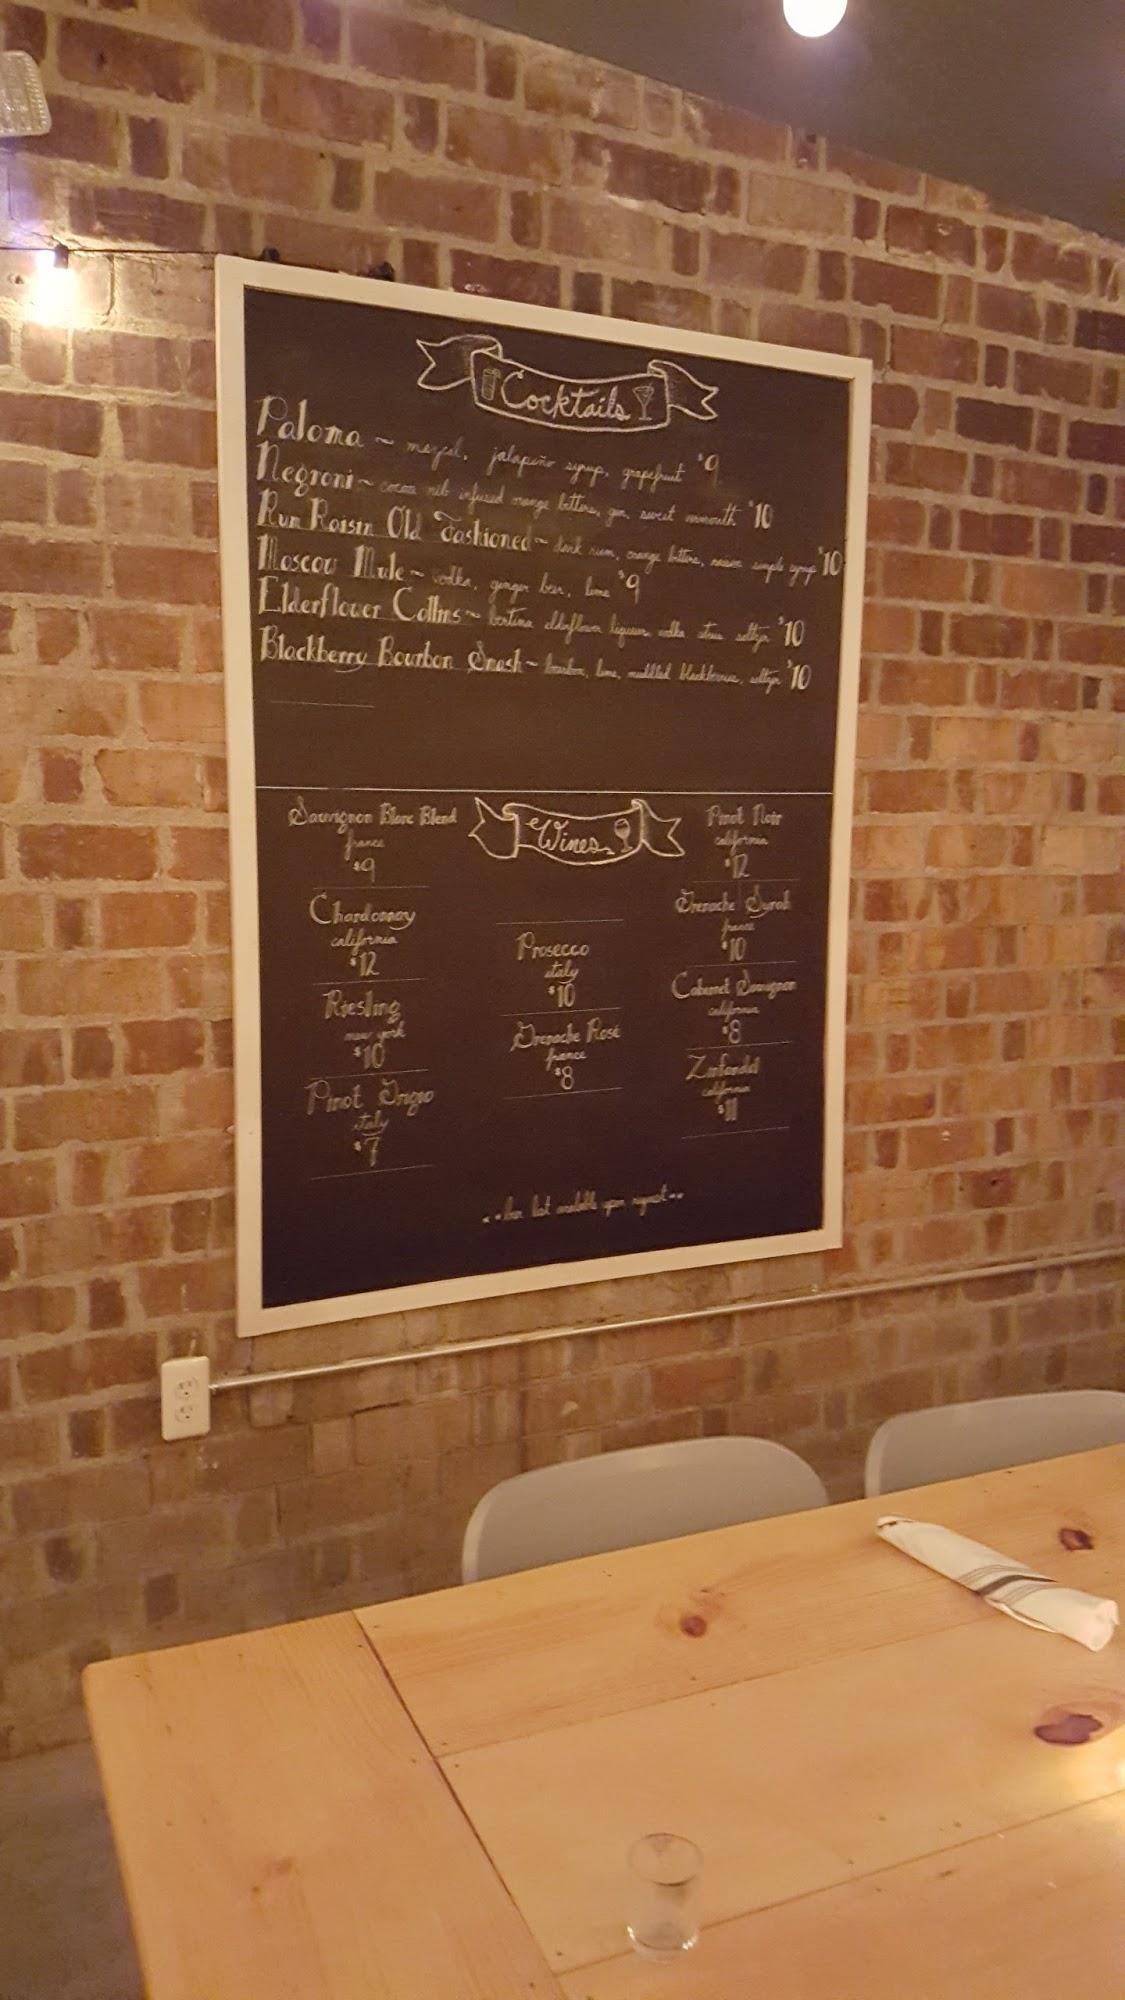 Cocktails
Paloma ~ mezcal, jalapeño syrup, grapefruit $9
Negroni ~ cocoa nib infused orange bitters, gin, sweet vermouth $10
Rum Raisin Old Fashioned ~ dark rum, orange bitters, raisin simple syrup $10
Moscow Mule ~ vodka, ginger beer, lime $9
Elderflower Collins ~ elderflower liqueur, vodka seltzer $10
Blackberry Bourbon Smash ~ bourbon, lime, muddled blackberries, seltzer $10
Wines
Sauvignon Blanc Blend
france
$9
Chardonnay
california
$12
Riesling
new york
$10
Pinot Grigio
italy
$7
Prosecco
italy
$10
Grenache Rosé
france
$8
Pinot Noir
california
$12
Grenache Syrah
france
$10
Cabernet Sauvignon
california
$8
Zinfandel
california
$11
**beer list available upon request**